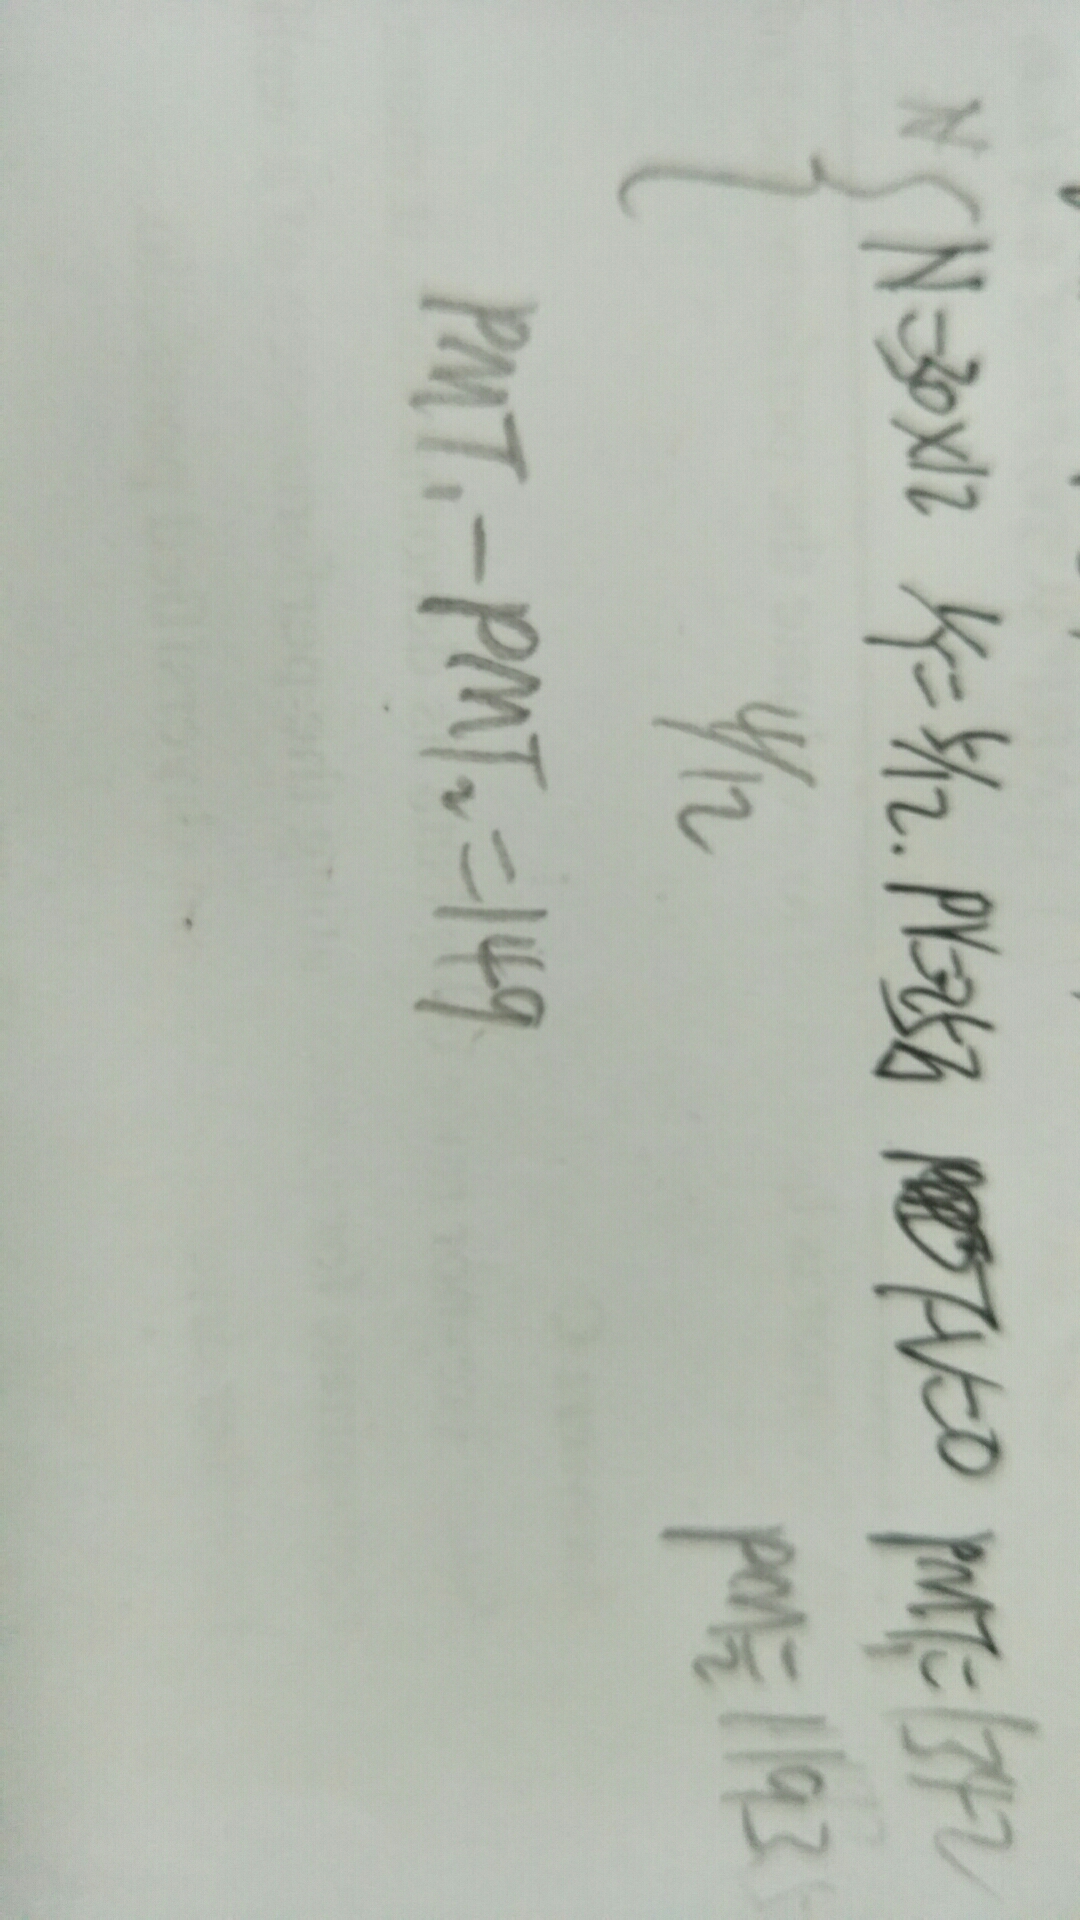 N { N=30×12 I/Y=5/12. PV=250 FV=0 PMT₁=1342
{ 4/12 PMT₂=1193
PMT₁-PMT₂=149